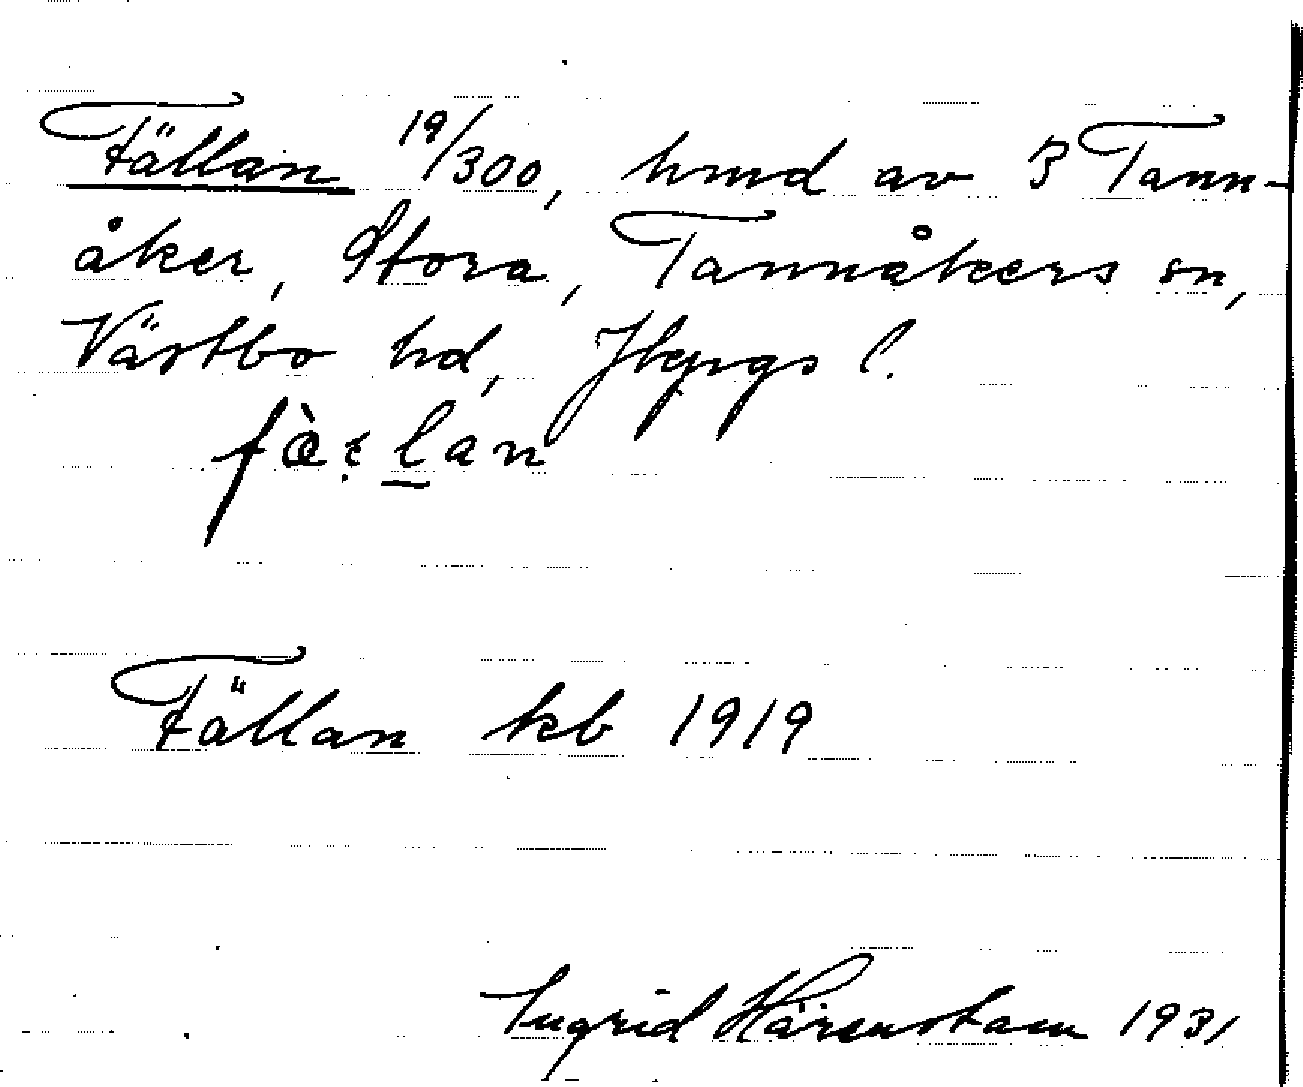 Fällan 19/300, hmd av 3 Tann-
åker, Stora, Tannåkers sn,
Västbo hd, Jkpgs l.
Fällan kb 1919
Ingrid Härenstam 1931